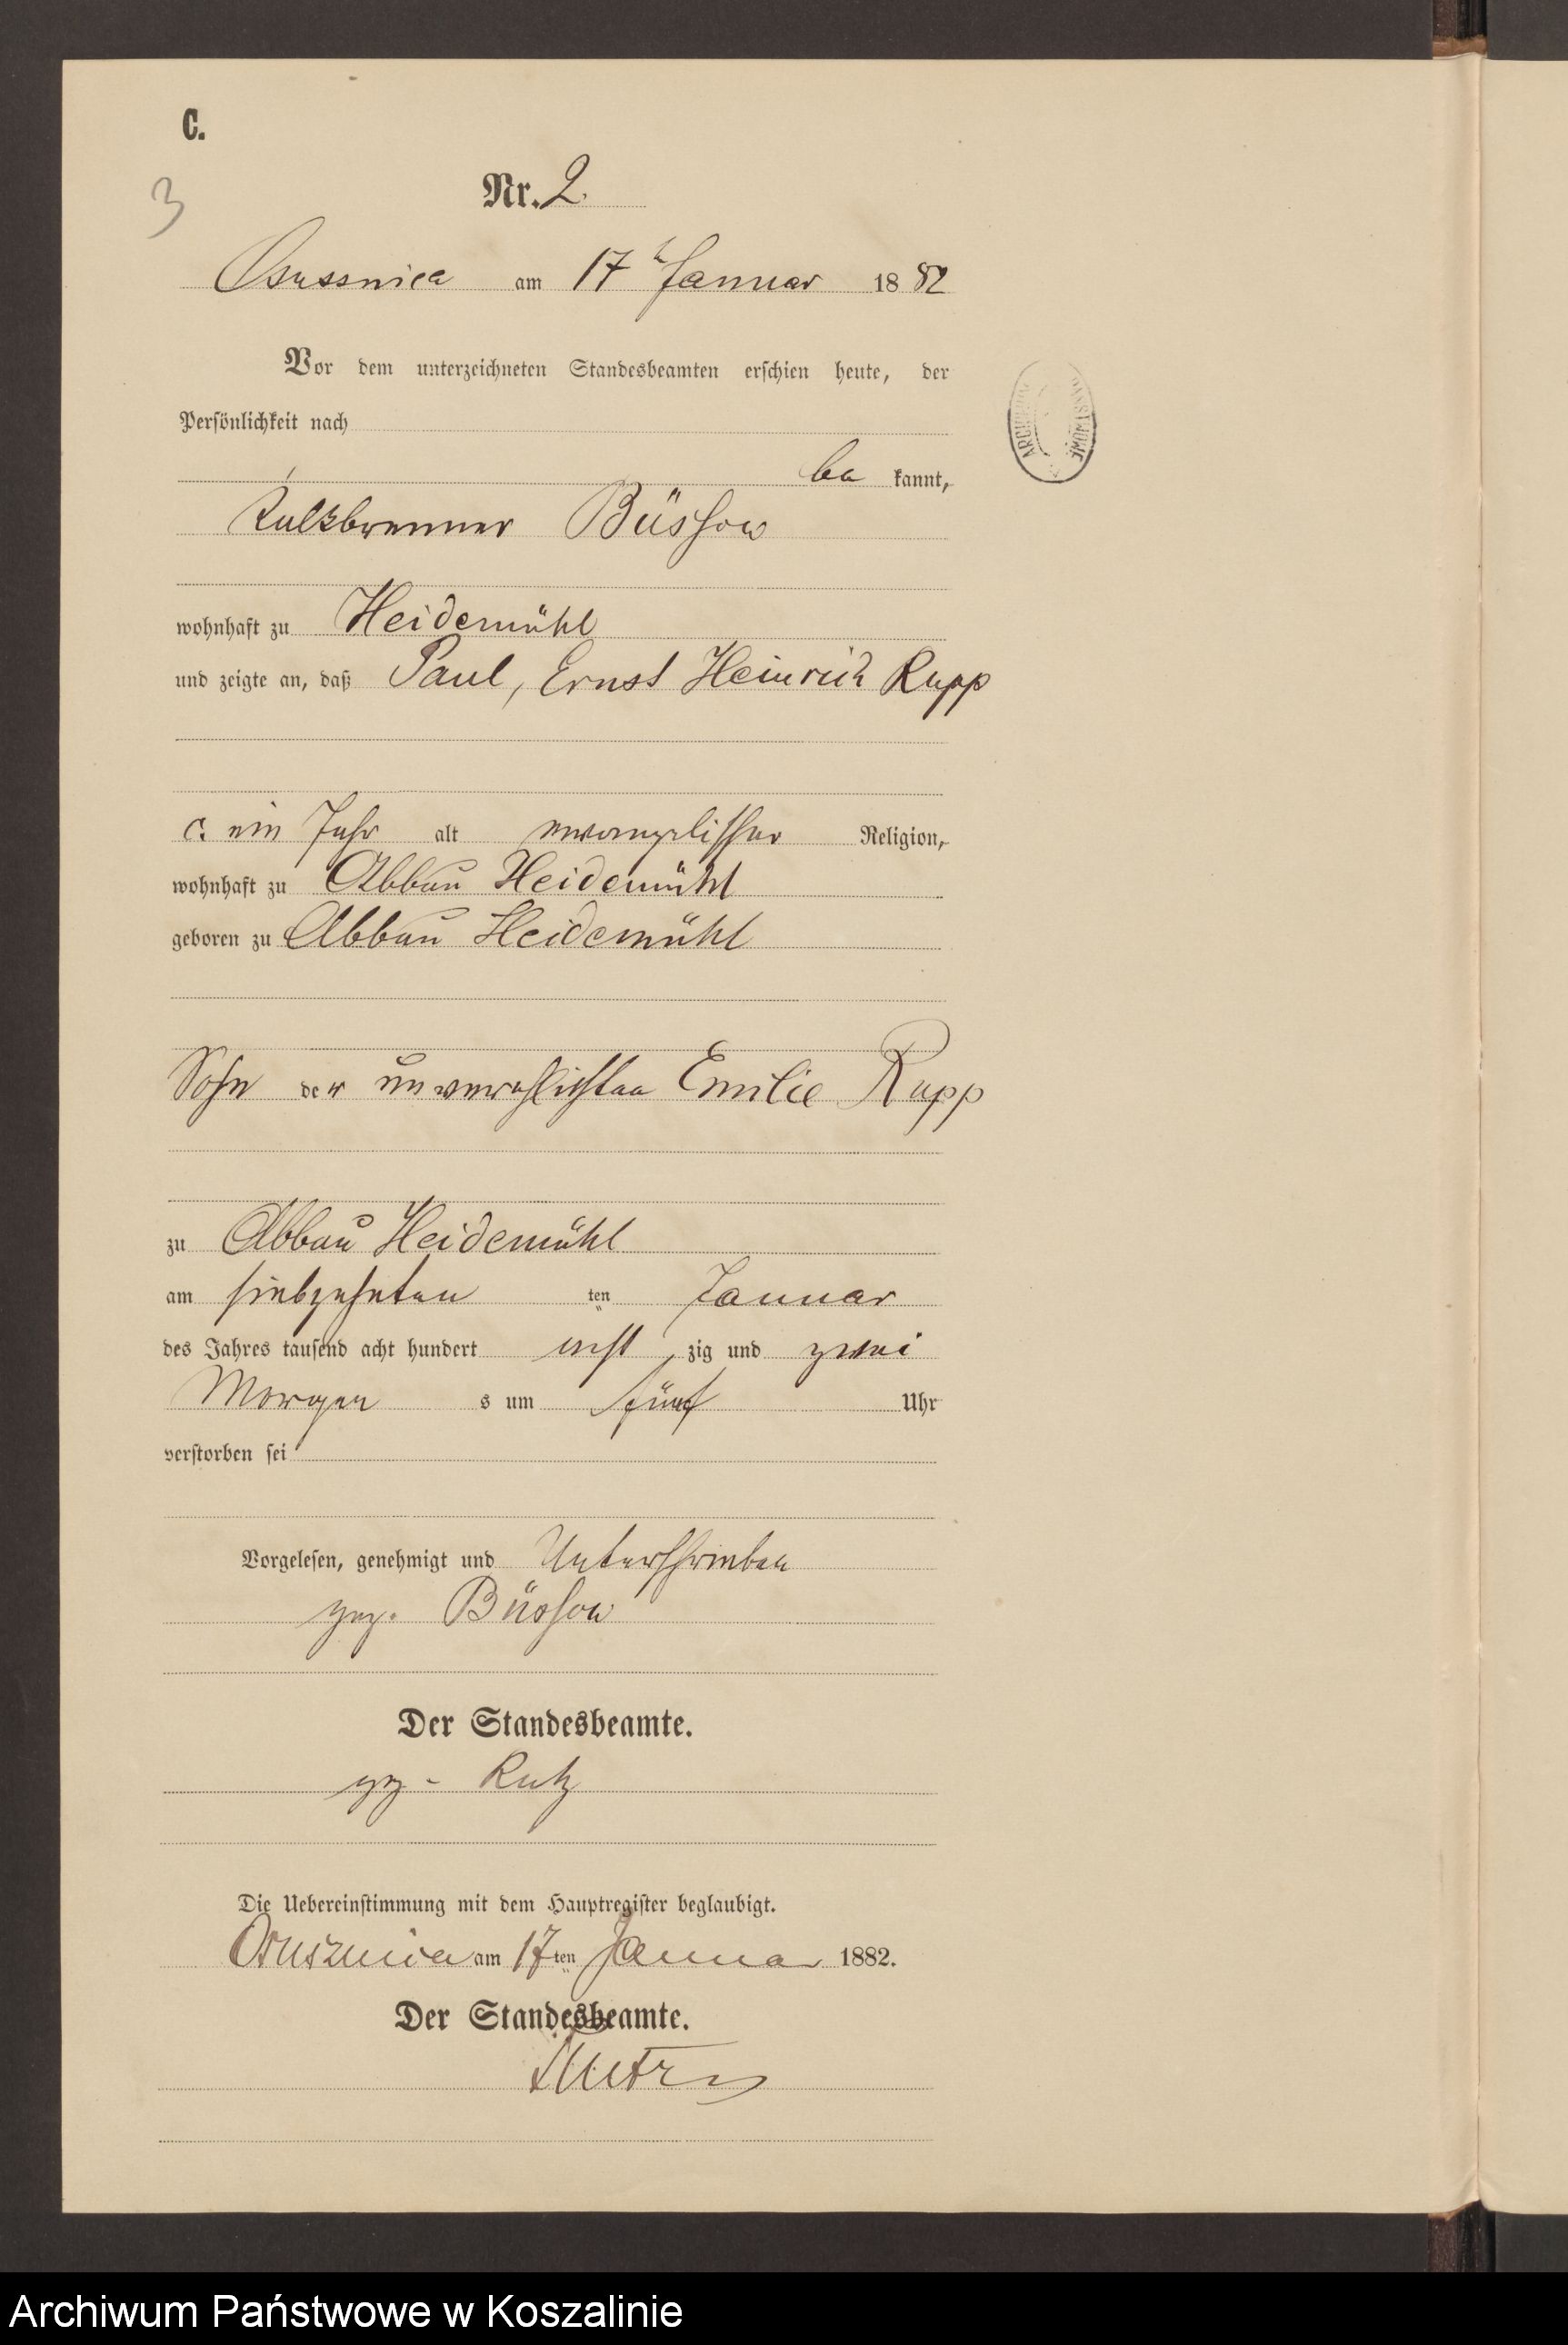 C.
3
Nr. 2.
Ossusnica am 17t Januar 1882
Vor dem unterzeichneten Standesbeamten erschien heute, der
Persönlichkeit nach
be kannt,
Kalkbrenner Büssow
wohnhaft zu Heidemühl
und zeigte an, daß Paul, Ernst Heinrich Rupp
c. ein Jahr alt evangelischer Religion,
wohnhaft zu Abbau Heidemühl
geboren zu Abbau Heidemühl
Sohn der unverehlichten Emilie Rupp
zu Abbau Heidemühl
am siebzehnten ten Januar
des Jahres tausend acht hundert acht zig und zwei
Morgen s um fünf Uhr
verstorben sei
Vorgelesen, genehmigt und Unterschrieben
gez. Büssow
Der Standesbeamte.
gez- Rutz
Die Uebereinstimmung mit dem Hauptregister beglaubigt.
am 17ten Januar 1882.
Der Standesbeamte.
Archiwum Państwowe w Koszalinie